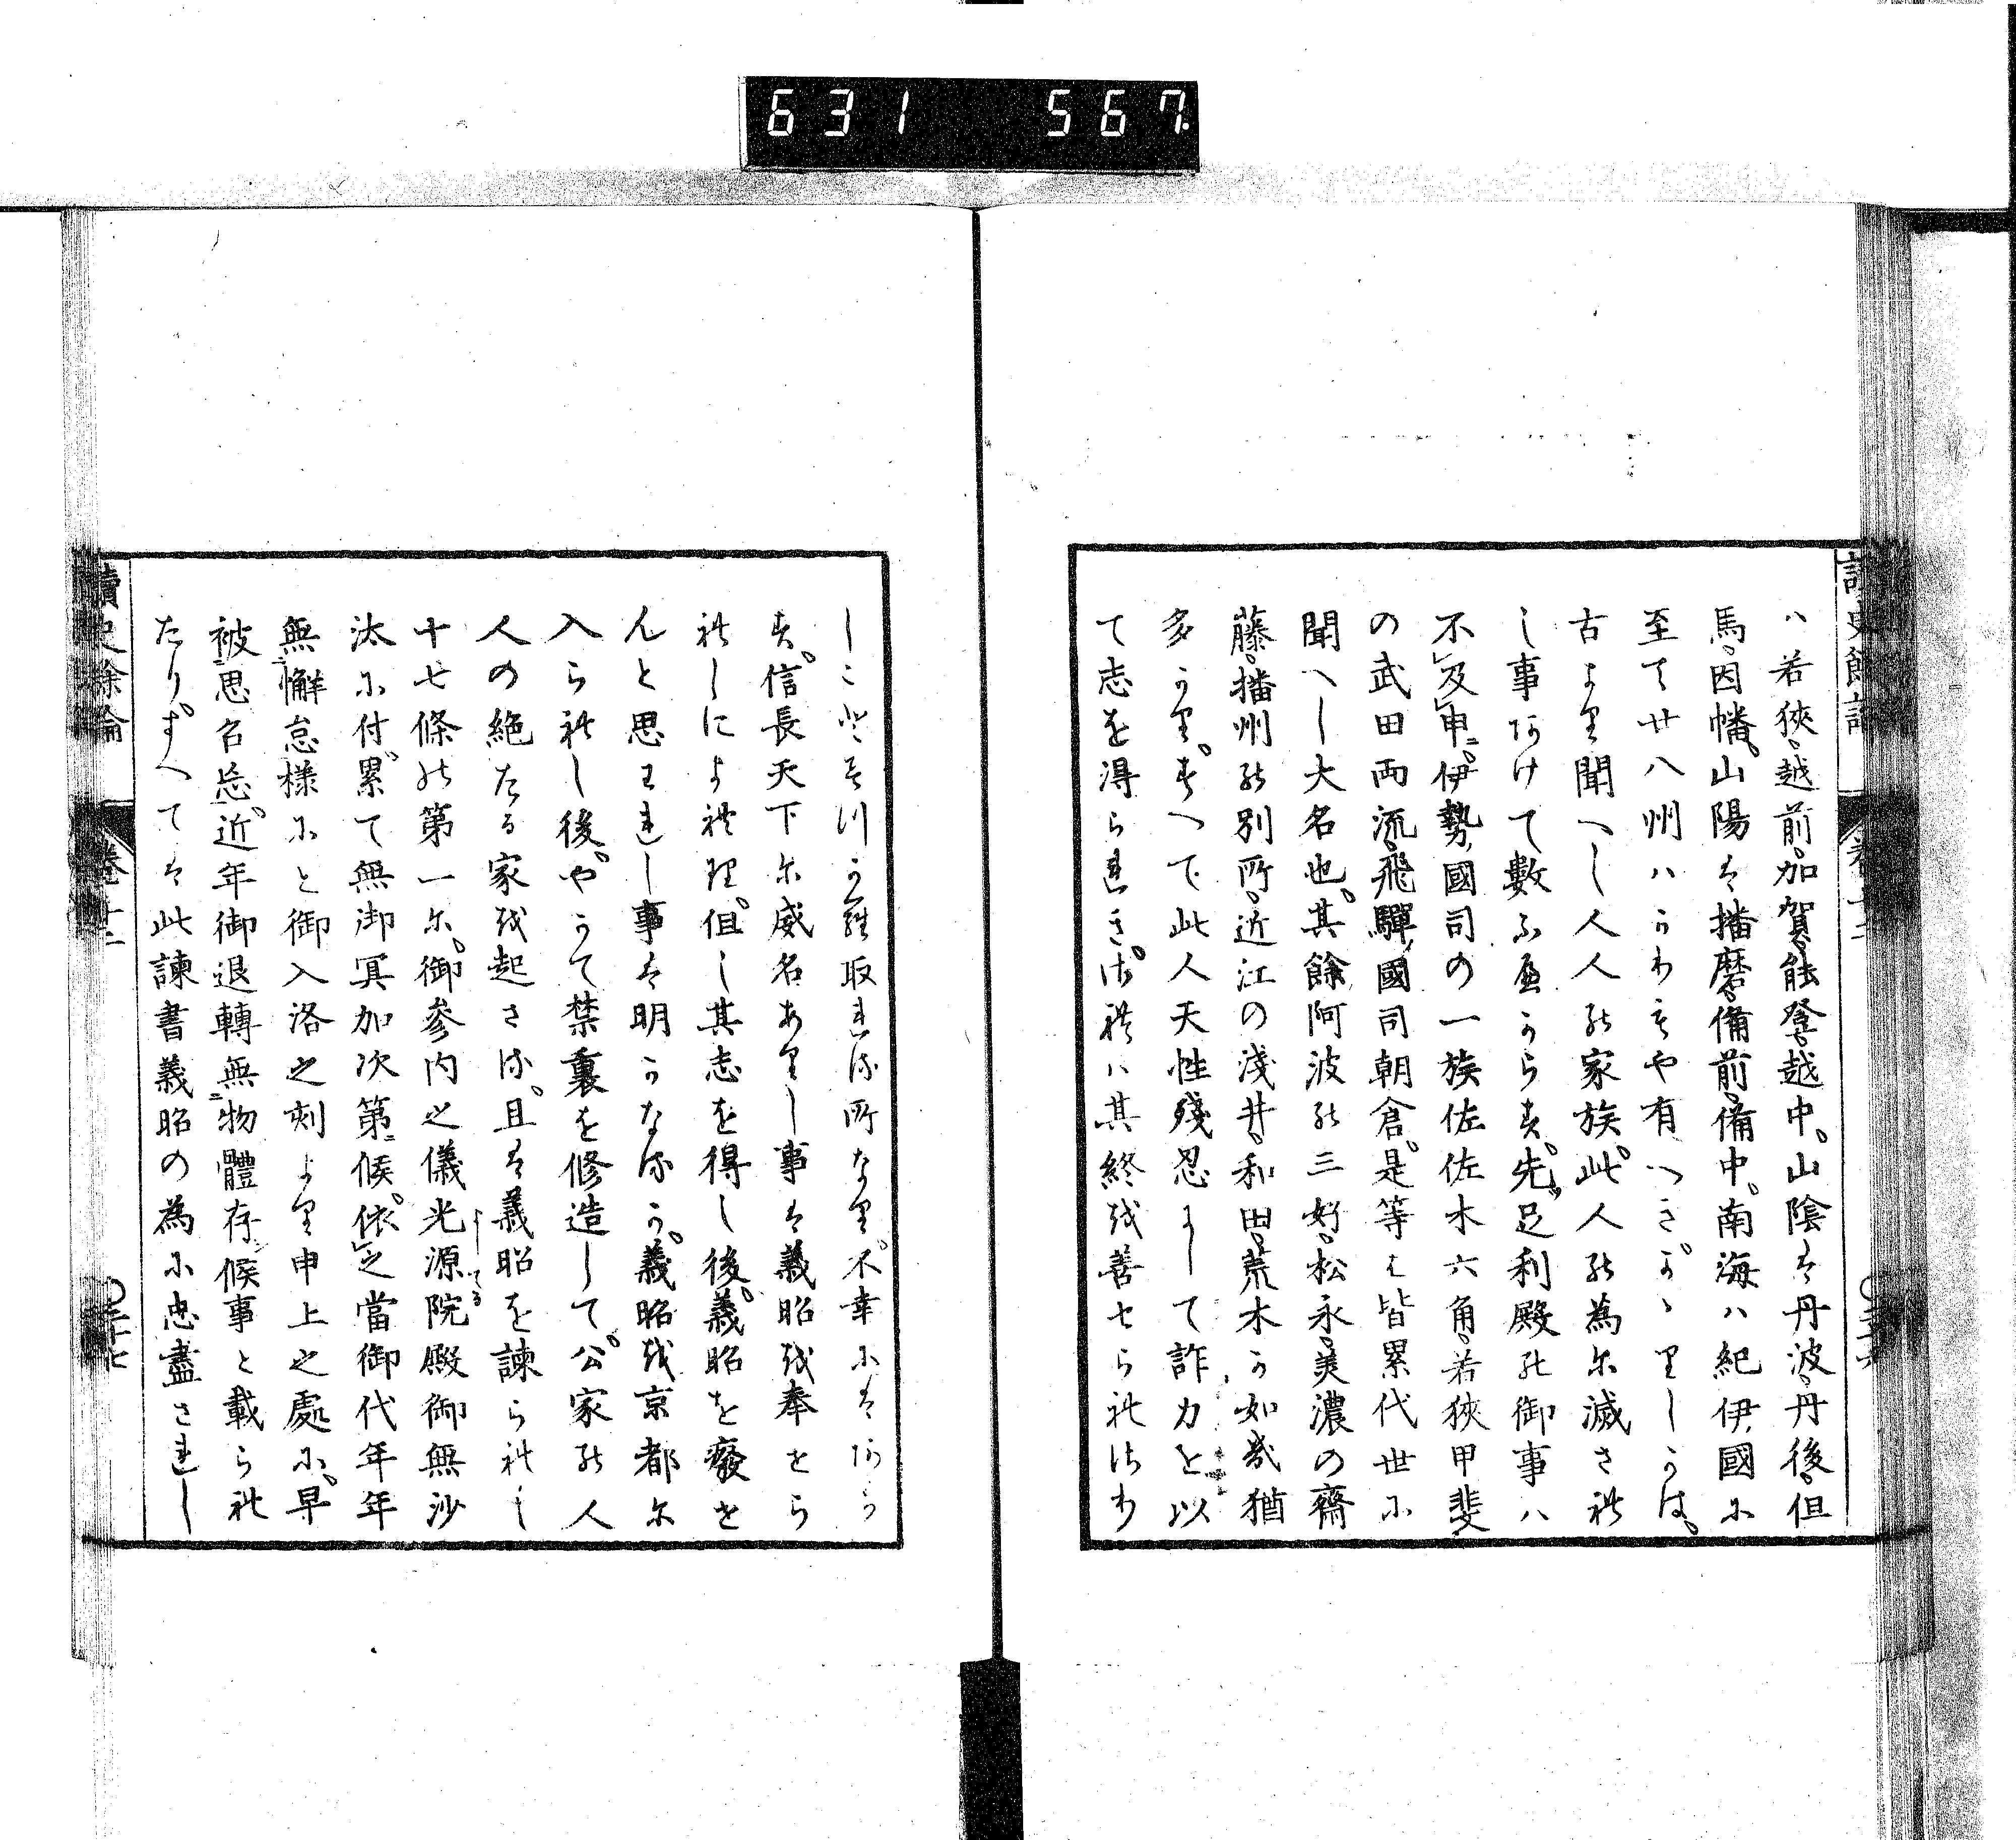 631 567
ハ若狹、越前、加賀、能登、越中、山陰は丹波、丹後、但
馬、因幡、山陽は播磨、備前、備中、南海ハ紀伊、國に
至て廿八州ハかりもや有へきかゝりしかは。
古より聞へし人人の家族、此人の為に滅され
し事あけて數ふ へからす。先足利殿の御事ハ
不及申ニ。伊勢國司の一族佐佐木六角、若狹甲斐
の武田両流、飛驒國司朝倉。是等は皆累代世に
聞へし大名也。其餘阿波の三好、松永、美濃の齋
藤、播州の別所、近江の淺井、和田、荒木か如き猶
多かり。すへて此人天性殘忍にして詐力を以
て志を得られき。されハ其終を善せられさり
しことみつから取れる所なり。不幸にはあら
す。信長天下に威名ありし事は義昭を奉せら
れしによれり。但し其志を得し後。義昭を癈せ
んと思はれし事は明かなるか。義昭を京都に
入られし後。やかて禁裏を修造して。公家の人
人の絶たる家を起さる。且は義昭を諫られし
十七條の第一に。御參内之儀光源院殿御無沙
よしてる
汰に付。累て無御冥加次第ニ候。依之當御代年年
無懈怠様にと御入洛之刻より申上之處に。早
被思召忘。近年御退轉無物體存候事と載られ
たり。すへては此諫書義昭の為に忠盡されし
讀史餘論
卷十二